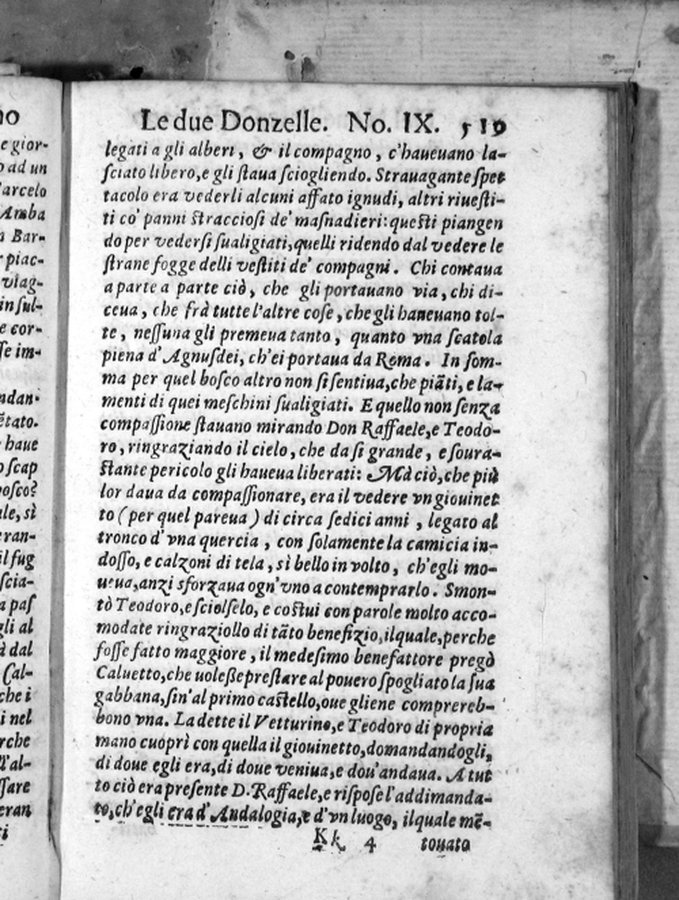 Le due Donzelle. No. IX. 519
legati a gli alberi, & il compagno, c'haueuano la-
sciato libero, e gli staua sciogliendo. Strauagante spet
tacolo era vederli alcuni affato ignudi, altri riuesti-
ti co' panni stracciosi de' masnadieri: questi piangen
do per vedersi sualigiati, quelli ridendo dal vedere le
strane fogge delli vestiti de' compagni. Chi contaua
a parte a parte ciò, che gli portauano via, chi di-
ceua, che frà tutte l'altre cose, che gli haueuano tol-
te, nessuna gli premeua tanto, quanto vna scatola
piena d'Agnusdei, ch'ei portaua da Roma. In som-
ma per quel bosco altro non si sentiua, che piãti, e la-
menti di quei meschini sualigiati. E quello non senza
compassione stauano mirando Don Raffaele, e Teodo-
ro, ringraziando il cielo, che da si grande, e soura-
stante pericolo gli haueua liberati: Mà ciò, che più
lor daua da compassionare, era il vedere vn giouinet
to (per quel pareua) di circa sedici anni, legato al
tronco d'vna quercia, con solamente la camicia in-
dosso, e calzoni di tela, sì bello in volto, ch'egli mo-
ueua, anzi sforzaua ogn'vno a contemprarlo. Smon-
tò Teodoro, e sciolselo, e costui con parole molto acco-
modate ringraziollo di tãto benefizio, ilquale, perche
fosse fatto maggiore, il medesimo benefattore pregò
Caluetto, che uolesse prestare al pouero spogliato la sua
gabbana, sin'al primo castello, oue gliene comprereb-
bono vna. La dette il Vetturino, e Teodoro di propria
mano cuoprì con quella il giouinetto, domandandogli,
di doue egli era, di doue veniua, e dou'andaua. A tut
to ciò era presente D. Raffaele, e rispose l'addimanda-
to, ch'egli era d'Andalogia, e d'vn luogo, ilquale mẽ-
Kk 4 touato